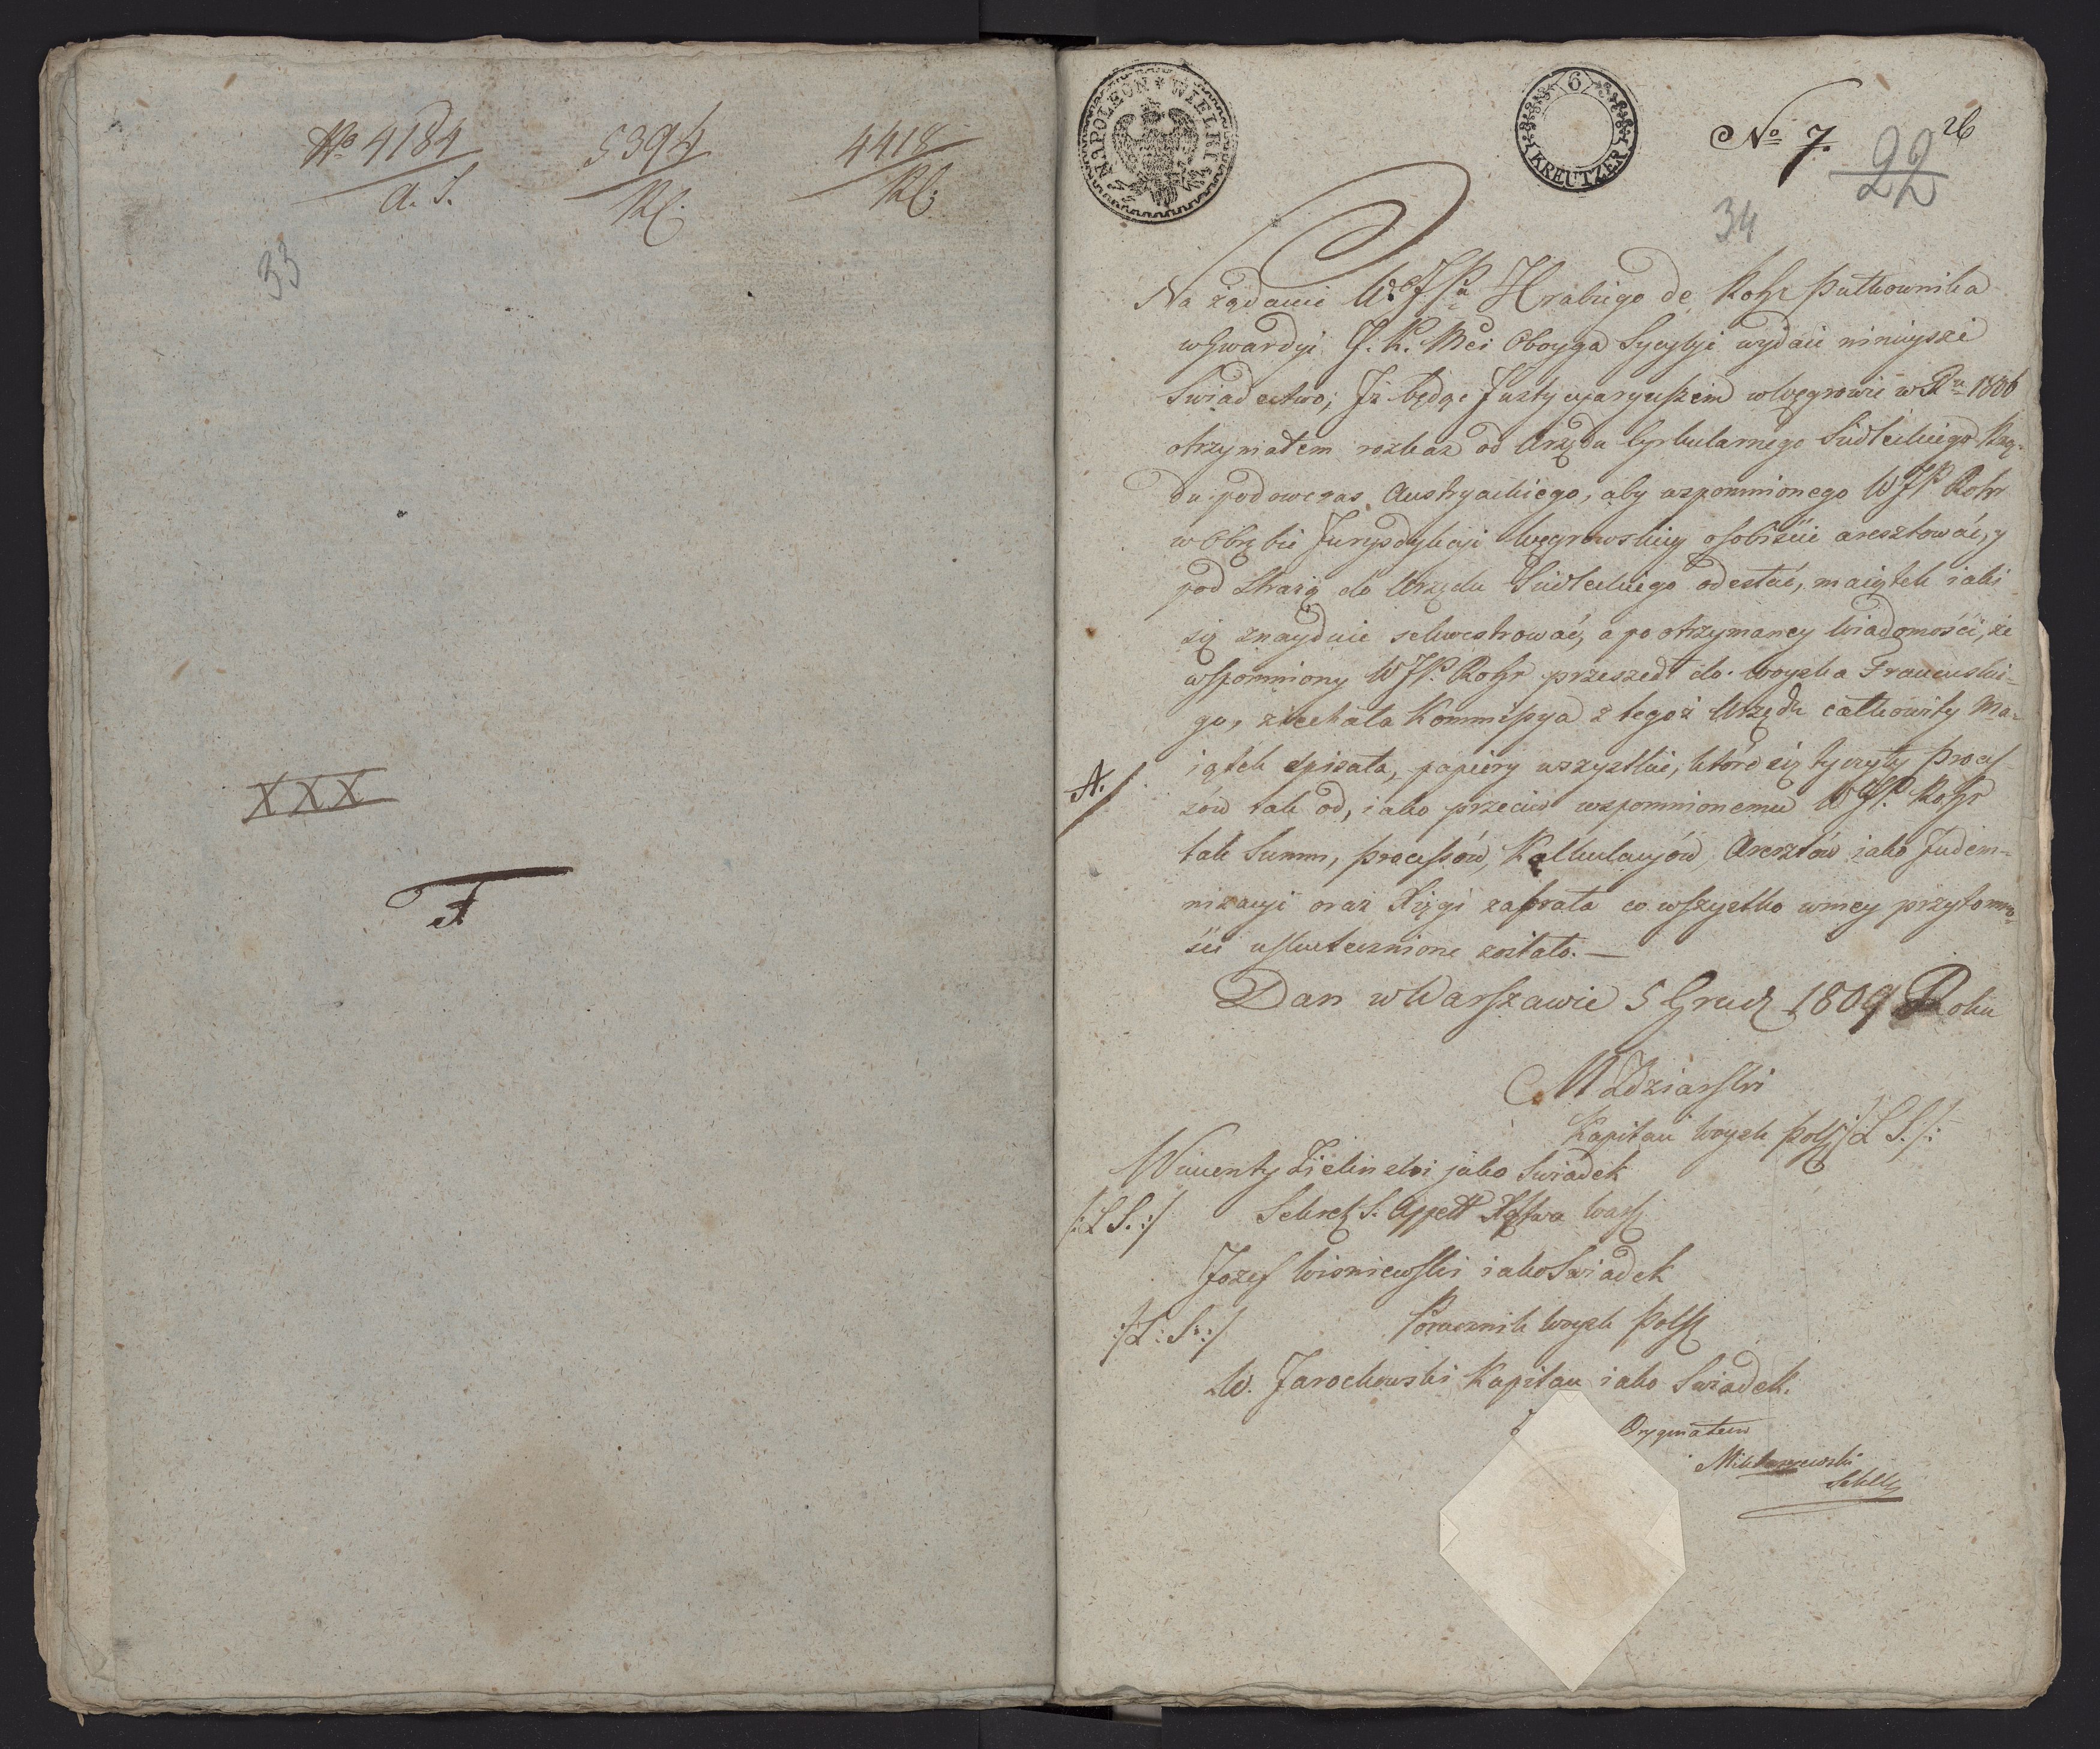 No 4184
A. S.
5394
Rl.
4418
Rl.
33
XXX
A
NAPOLEON WIELKI
6
KREUTZER
No 7.
22
26
34
Na żądanie W.o JPa Hrabiego de Rohr Pułkownika
w Gwardyi J. K. Mci Oboyga Sycylyi wydaię ninieysze
Swiadectwo; Jż będąc Justycyaryuszem w Węgrowie w Ru 1806
otrzymałem rozkaz od Urzędu Cyrkularnego Siedleckiego Rzą-
du podowczas Austryackiego, aby wspomnionego WJP Rohr
w Obrębie Jurysdykcyi Węgrowskiey osobiście aresztować, y
pod Strażą do Urzędu Siedleckiego odesłać, maiątek iaki
się znayduie sekwestrować, a po otrzymaney Wiadomości, że
wspomniony WJP. Rohr przeszedł do woyska Francuski-
go, ziechała Kommissya z tegoż Urzędu całkowity Ma-
iątek spisała, papiery wszystkie, które się tyczyły Proces-
A.
sów tak od, iako przeciw wspomnionemu WJP. Rohr
tak Summ, processów, Kalkulacyów, Aresztów iako Judem-
nizacyi oraz Xięgi zabrała co wszystko w mey przytomno-
ści uskutecznione zostało. —
Dan w Warszawie 5 Grudz 1809 Roku
M Zdziarski
Kapitan Woysk Polsz /: L S. /:
Wincenty Zielinski jako Swiadek
/: L S. :/ Sekretz S. Appell Xęstwa Warsz
Jozef Wisniewski iako Swiadek
:/ L: S: :/ Porucznik Woysk Polsz
W. Jarochowski Kapitan iako Swiadek.
Oryginałem